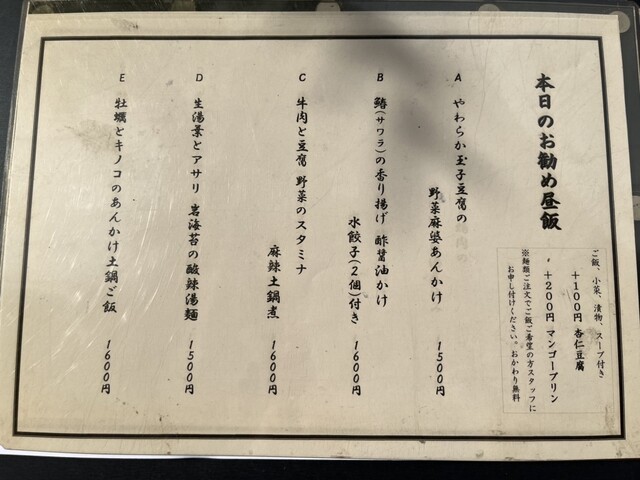 本日のお勧め昼飯
ご飯、小菜、漬物、スープ付き
+100円 杏仁豆腐
〃 +200円 マンゴープリン
※麺類ご注文でご飯ご希望の方スタッフに
お申し付けください。おかわり無料
A やわらか玉子豆腐の
野菜麻婆あんかけ 1500円
B 鰆(サワラ)の香り揚げ 酢醤油かけ
水餃子(2個)付き 1600円
C 牛肉と豆腐 野菜のスタミナ
麻辣土鍋煮 1600円
D 生湯葉とアサリ 岩海苔の酸辣湯麺 1500円
E 牡蠣とキノコのあんかけ土鍋ご飯 1600円